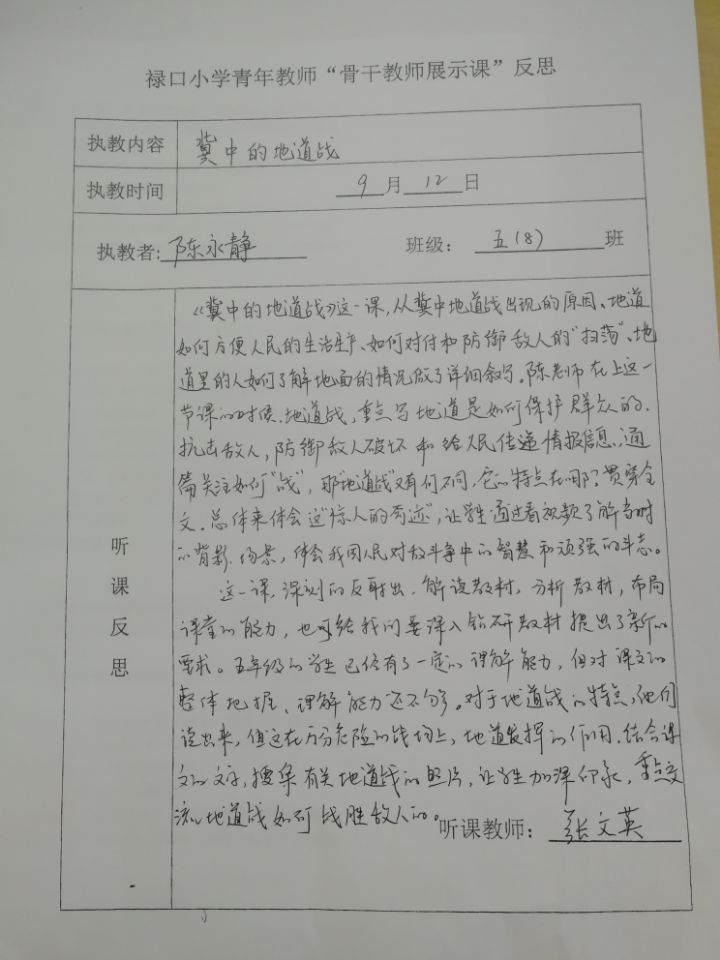 禄口小学青年教师“骨干教师展示课”反思
执教内容 冀中的地道战
执教时间 9月12日
执教者:陈永静 班级：五(8)班
听课反思
《冀中的地道战》这一课，从冀中地道战出现的原因、地道
如何方便人民的生活生产、如何对付和防御敌人的“扫荡”、地
道里的人如何了解地面的情况做了详细叙写。陈老师在上这一
节课的时候，地道战，重点写地道是如何保护群众的、
抗击敌人，防御敌人破坏和给人民传递情报信息，通
篇关注如何“战”，那“地道战”又有何不同，它的特点在哪？贯穿全
文。总体来体会这“惊人的奇迹”，让学生通过看视频了解当时
的背影、场景，体会我国人民对敌斗争中的智慧和顽强的斗志。
这一课，深刻的反射出，解读教材，分析教材，布局
课堂的能力，也可给我们要深入钻研教材提出了新的
要求。五年级的学生已经有了一定的理解能力，但对课文的
整体把握、理解能力还不够。对于地道战的特点，他们
说出来，但这在万分危险的战场上，地道发挥的作用，结合课
文的文字，搜集有关地道战的照片，让学生加深印象，重点交
流地道战如何战胜敌人的。
听课教师：张文英